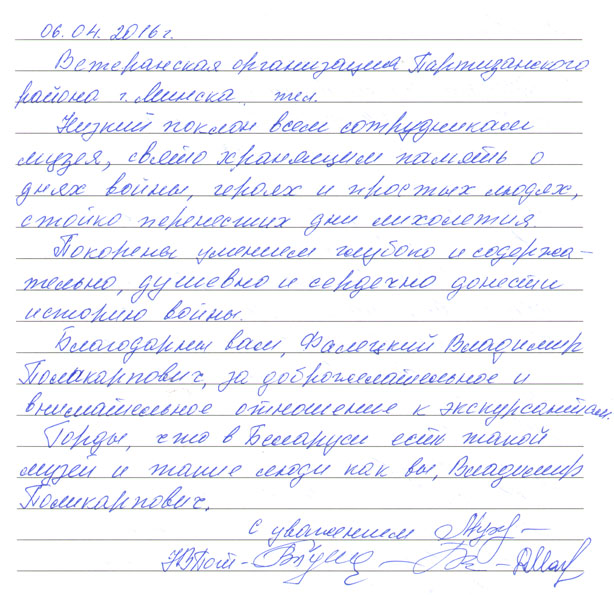 06.04.2016г.
Ветеранская организация Партизанского
района г. Минска тел.
Низкий поклон всем сотрудникам
музея, свято хранящим память о
днях войны, героях и простых людях,
стойко перенесших дни лихолетия.
Покорены умением глубоко и содержа-
тельно, душевно и сердечно донести
историю войны.
Благодарны вам, Фалецкий Владимир
Поликарпович, за доброжелательное и
внимательное отношение к экскурсантам.
Горды, что в Беларуси есть такой
музей и такие люди как вы, Владимир
Поликарпович.
с уважением